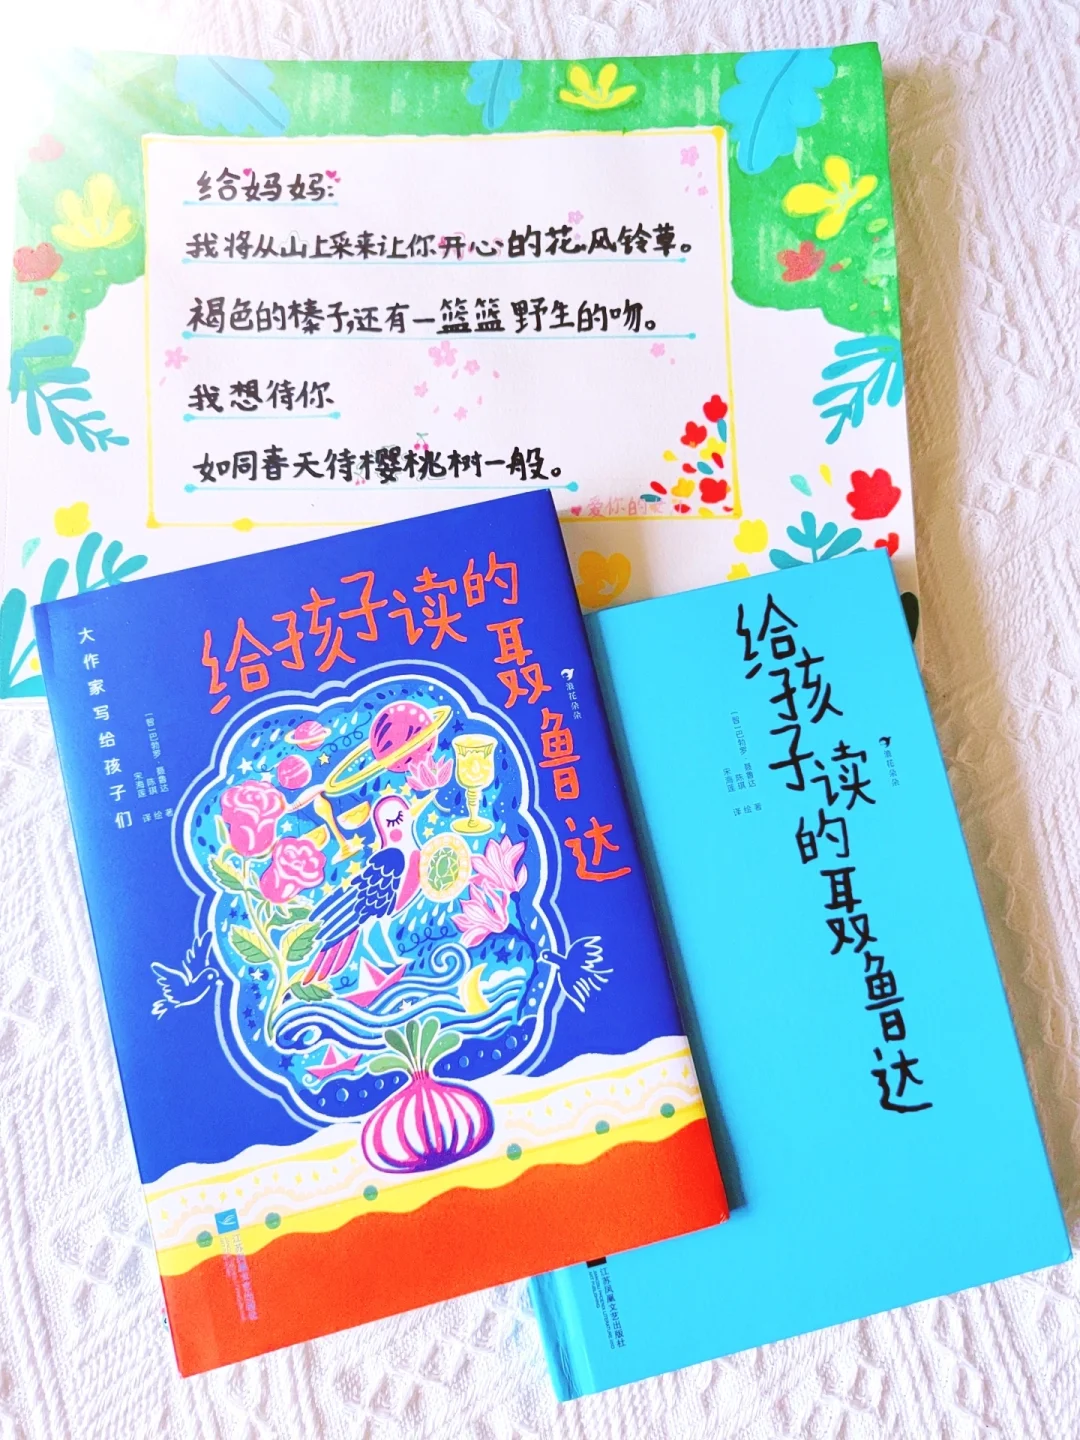 给妈妈:
我将从山上采来让你开心的花,风铃草。
褐色的榛子,还有一篮篮野生的吻。
我想待你
如同春天待樱桃树一般。
爱你的
大作家写给孩子们
给孩子读的聂鲁达
[智]巴勃罗·聂鲁达 著
陈琪 绘
宋海莲 译
浪花朵朵
江苏凤凰文艺出版社
给孩子读的聂鲁达
[智]巴勃罗·聂鲁达 著
陈琪 绘
宋海莲 译
浪花朵朵
江苏凤凰文艺出版社